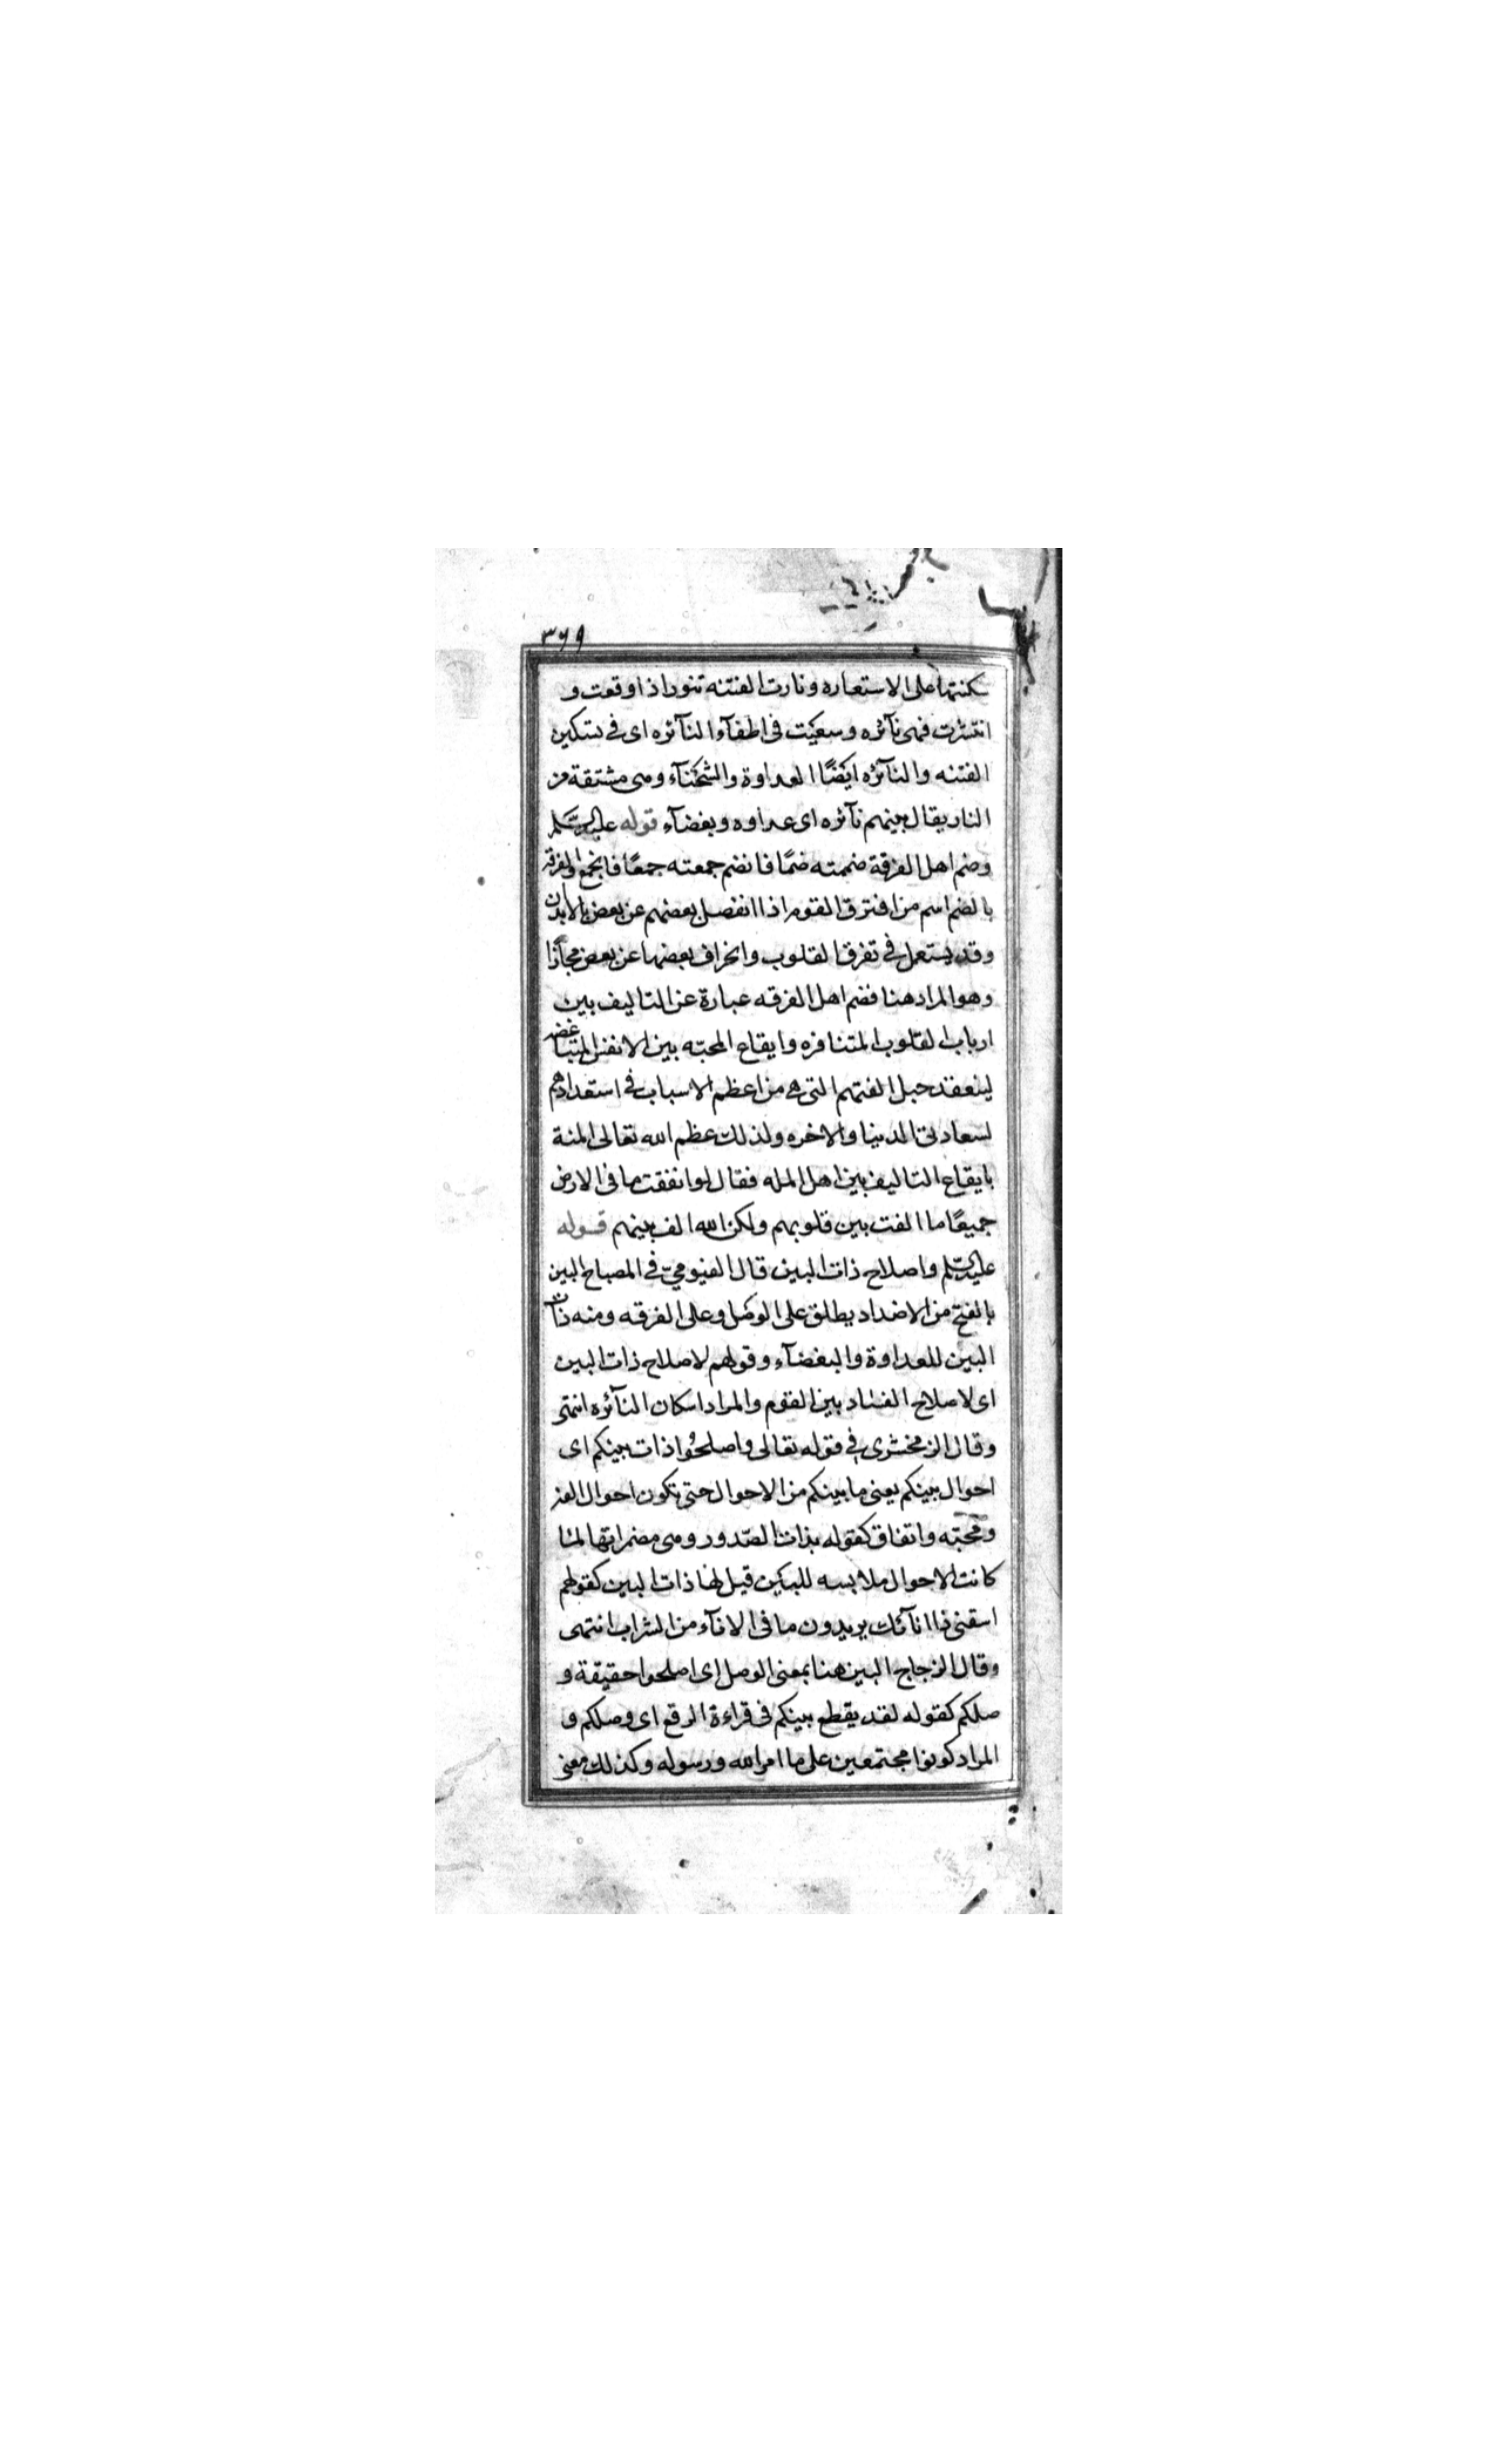 ٣٦٩
سكنتها على الاستعاره ونارت الفتنه تنور اذا وقعت و
انتشرت فهى نآئره وسعيت فى اطفآء النآئره اى فى تسكين
الفتنه والنآئره ايضًا العداوة والشحنآء وهى مشتقة من
النار يقال بينهم نآئره اى عداوه وبغضآء قوله عليه السلم
وضم اهل الفرقة ضممته ضمًا فانضم جمعته جمعًا فانجمع والفرقة
بالضم اسم من افترق القوم اذا انفصل بعضهم عن بعض بالابدان
وقد يستعمل فى تفرق القلوب وانحراف بعضها عن بعض مجازًا
وهو المراد هنا فضم اهل الفرقه عبارة عن التاليف بين
ارباب القلوب المتنافره وايقاع المحبه بين الانفس المتباغضه
لينعقد حبل الفتهم التى هى من اعظم الاسباب فى استعدادهم
لسعادتى الدنيا والاخره ولذلك عظم الله تعالى المنة
بايقاع التاليف بين اهل المله فقال لو انفقت ما فى الارض
جميعًا ما الفت بين قلوبهم ولكن الله الف بينهم قوله
عليه السلم واصلاح ذات البين قال الفيومىّ فى المصباح البين
بالفتح من الاضداد يطلق على الوصل وعلى الفرقه ومنه ذات
البين للعداوة والبغضآء وقولهم لاصلاح ذات البين
اى لاصلاح الفساد بين القوم والمراد اسكان النآئره انتهى
وقال الزمخشرى فى قوله تعالى واصلحُوا ذات بينكم اى
احوال بينكم يعنى ما بينكم من الاحوال حتى تكون احوال الفة
ومحبّه واتفاق كقوله بذات الصّدور وهى مضمراتها لمّا
كانت الاحوال ملابسه للبين قيل لها ذات البين كقولهم
اسقنى ذا انآئك يريدون ما فى الانآء من الشراب انتهى
وقال الزجاج البين هنا بمعنى الوصل اى اصلحوا حقيقة و
صلكم كقوله لقد يقطع بينكم فى قراءة الرفع اى وصلكم و
المراد كونوا مجتمعين على ما امر الله ورسوله وكذلك معنى